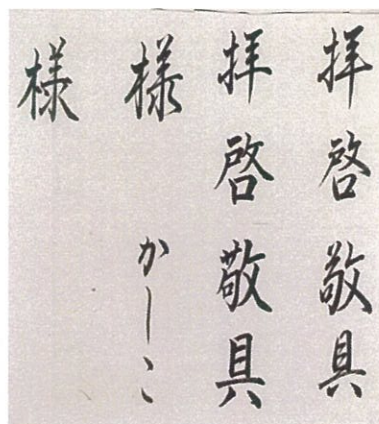 拝啓敬具
拝啓敬具
様 かしこ
様